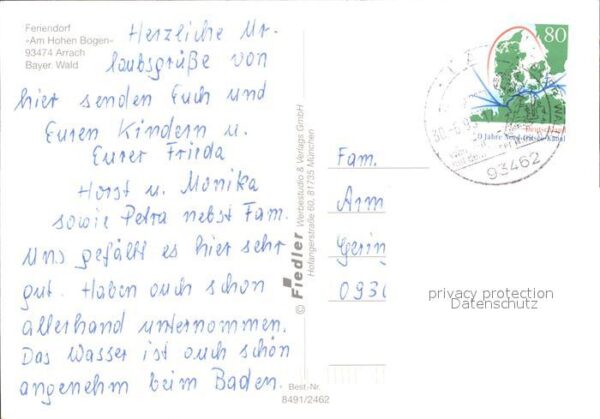 Feriendorf
»Am Hohen Bogen«
93474 Arrach
Bayer. Wald
Herzliche Ur-
laubsgrüße von
hier senden Euch und
Euren Kindern u.
Eurer Frieda
Horst u. Monika
sowie Petra nebst Fam.
Uns gefällt es hier sehr
gut. Haben auch schon
allerhand unternommen.
Das Wasser ist auch schön
angenehm beim Baden.
© Fiedler Werbestudio & Verlags GmbH
Hofangerstraße 60, 81735 München
Best-Nr.
8491/2462
80
Deutschland
Jahre Nord-Ostsee-Kanal
93462
Fam.
Arm
Gering
093
privacy protection
Datenschutz